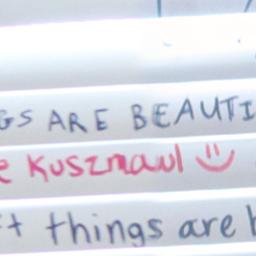 GS ARE BEAUTI
e Kuszmaul
t things are